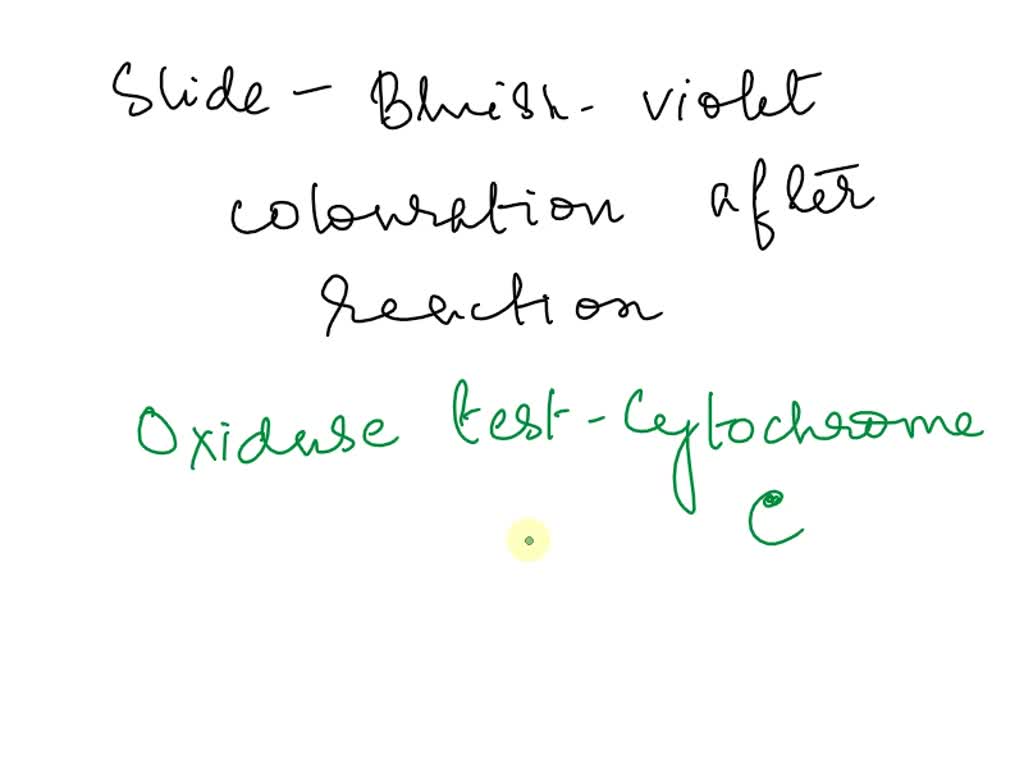 Slide - Bluish - violet
colouration after
reaction
Oxidase test - Cytochrome
C